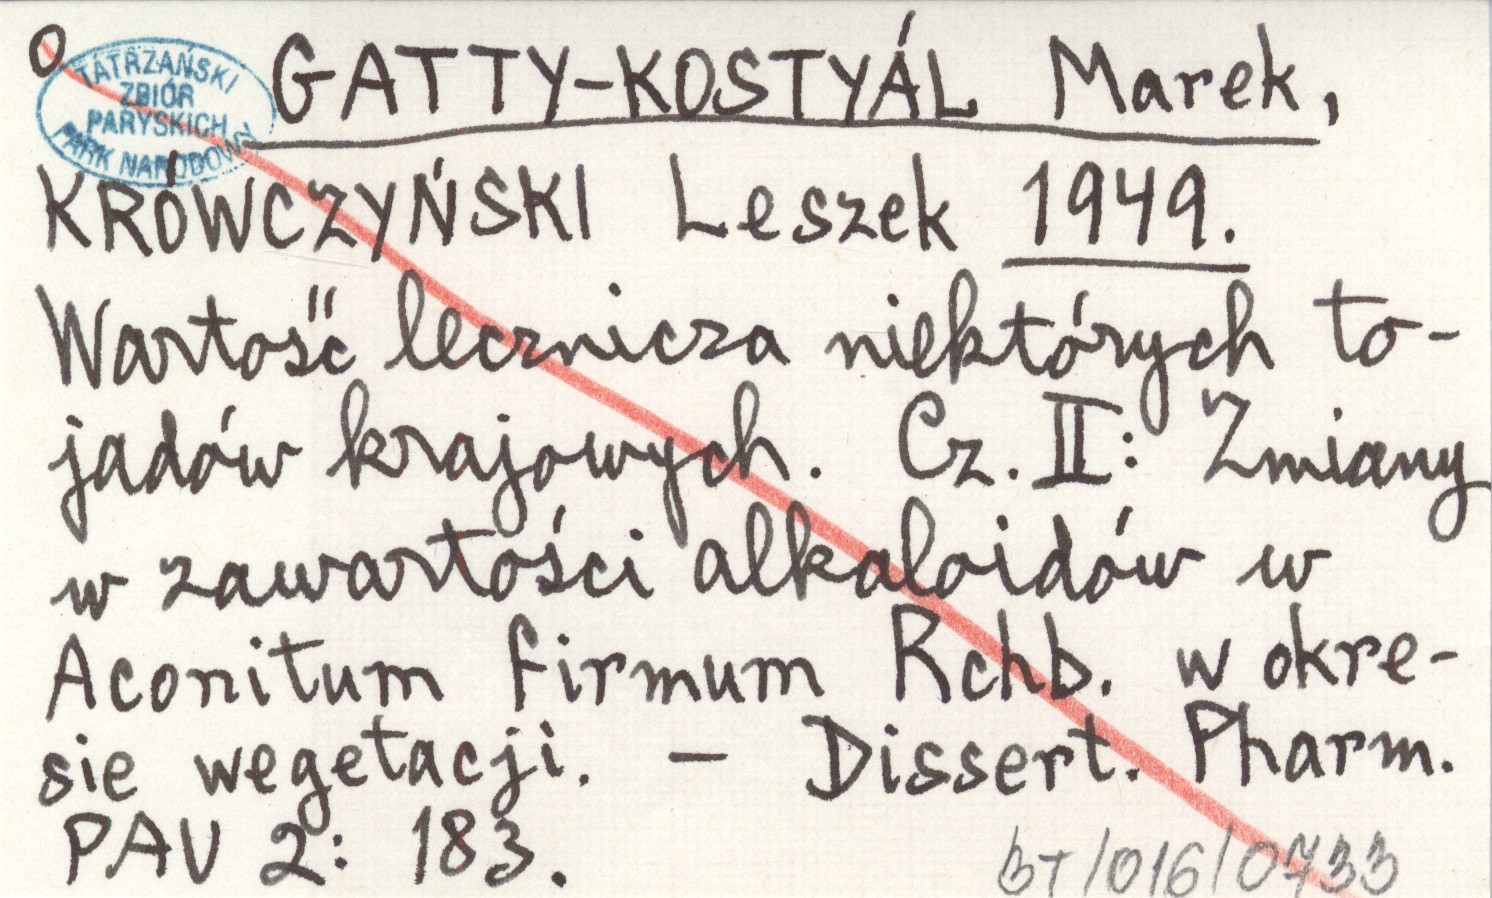 O
TATRZAŃSKI
ZBIÓR
PARYSKICH
PARK NARODOWY
GATTY-KOSTYÁL Marek,
KRÓWCZYŃSKI Leszek 1949.
Wartość lecznicza niektórych to-
jadów krajowych. Cz. II: Zmiany
w zawartości alkaloidów w
Aconitum firmum Rchb. w okre-
sie wegetacji. — Dissert. Pharm.
PAU 2: 183.
BT/016/0733